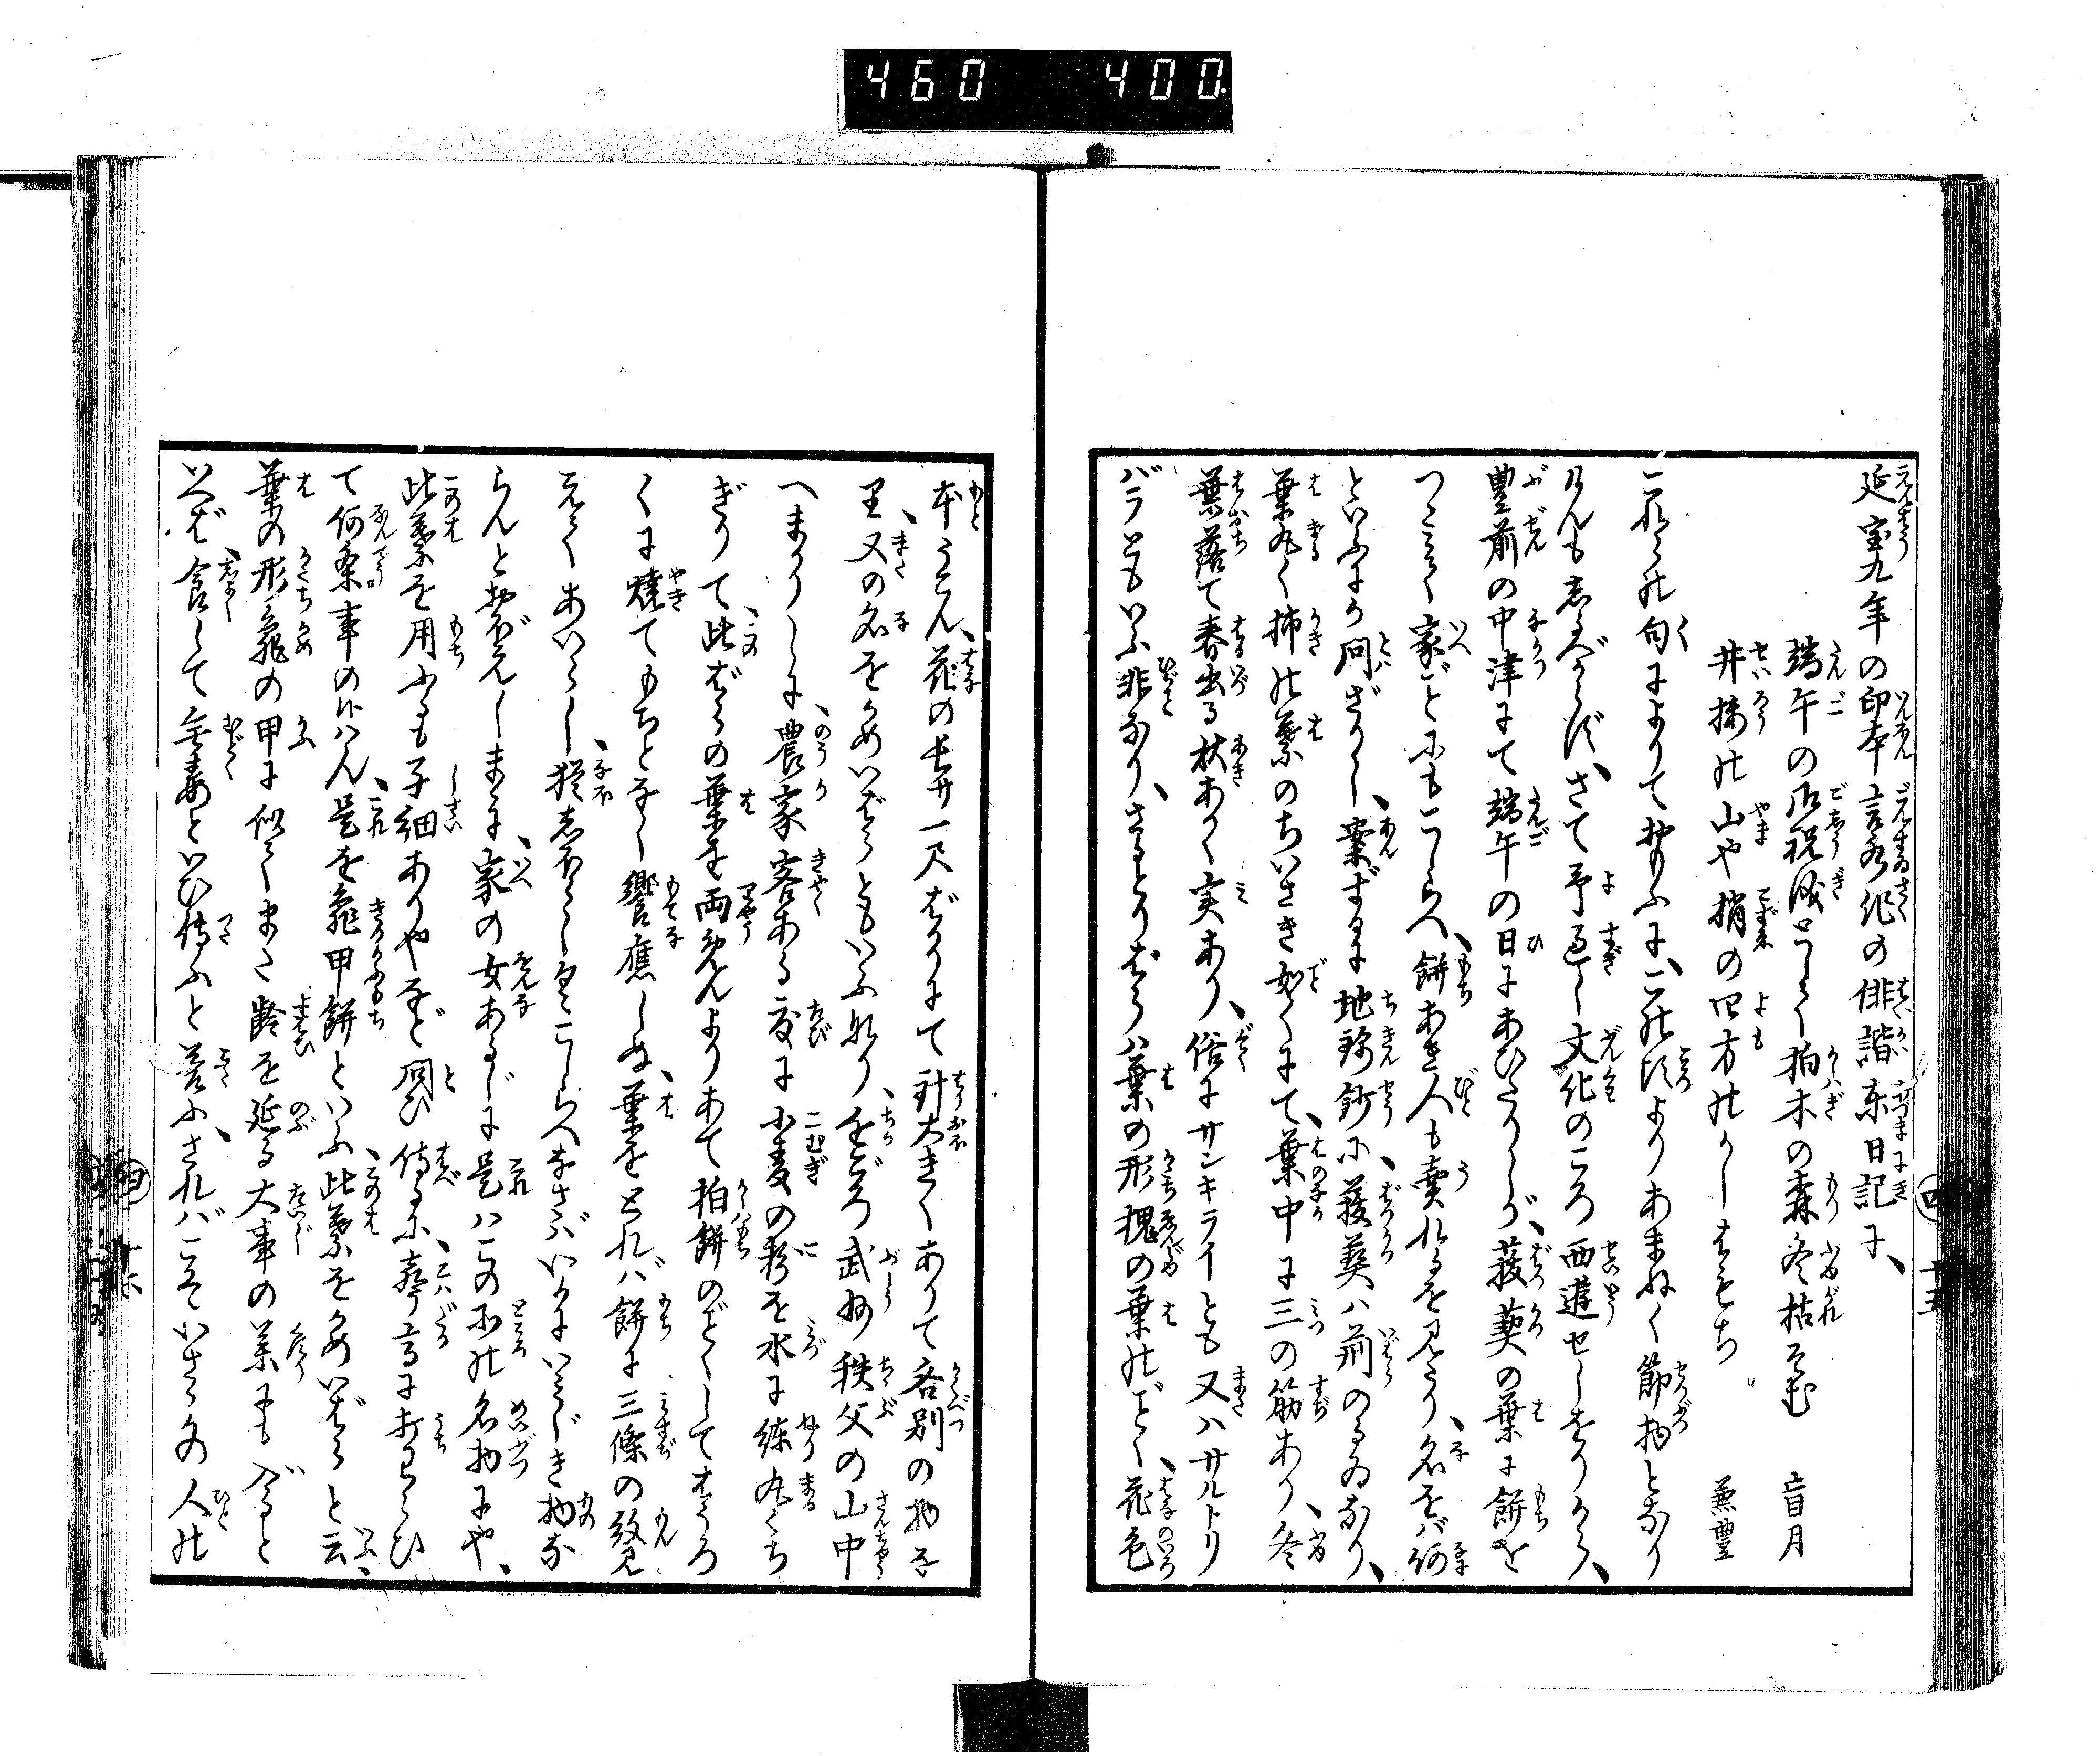 460 400
延宝九年の印本言水作の俳諧東日記に、
端午の御祝儀として柏木の森冬枯そむ 盲月
井楼の山や梢の四方のかしはもち 兼豊
これらの句によりておもふに、この頃よりあまねく節物となり
けんもしるべからず、さて予過し文化のころ西遊せしをりから、
豊前の中津にて端午の日にあひたりしが、菝葜の葉に餅を
つゝみて家ごとにもこしらへ、餅あき人も賣れるを見たり、名をバ何
といふにか問ざりし、案ずるに地錦鈔に、菝葜ハ荊のるゐなり、
葉丸く柿の葉のちいさき如くにて、葉中に三の筋あり、冬
葉落て春出る秋あかく実あり、俗にサンキライとも又ハサルトリ
バラともいふ非なり、さるとりばらハ葉の形槐の葉のごとく、花色
本うこん、花の長サ一尺ばかりにて計大きくありて各別の物な
り、又の名をかめいばらともいふ也、ちかごろ武州秩父の山中
へまかりしに、農家客ある度に小麦の粉を水に練丸くち
ぎりて、此ばらの葉を両めんよりあて柏餅のごとくしてはうろ
くに焼てもちとなし饗應しぬ、葉をとれバ餅に三條の紋見
えてあいらし、猶しほらしくこしらへなさバいかにいみじき物な
らんとおぼえしまゝに、家の女あるじに是ハこの所の名物にや、
此葉を用ふるも子細ありやなど問ひ侍るに、こハ声高に打わらひ
て何条事の候ハん、是を龜甲餅といふ此葉をかめいばらと云、
葉の形龜の甲に似てまた齢を延る大事の薬にも ずると
いへば、食して無毒といひ傳ふと答ふ、されバこそいさゝの人の